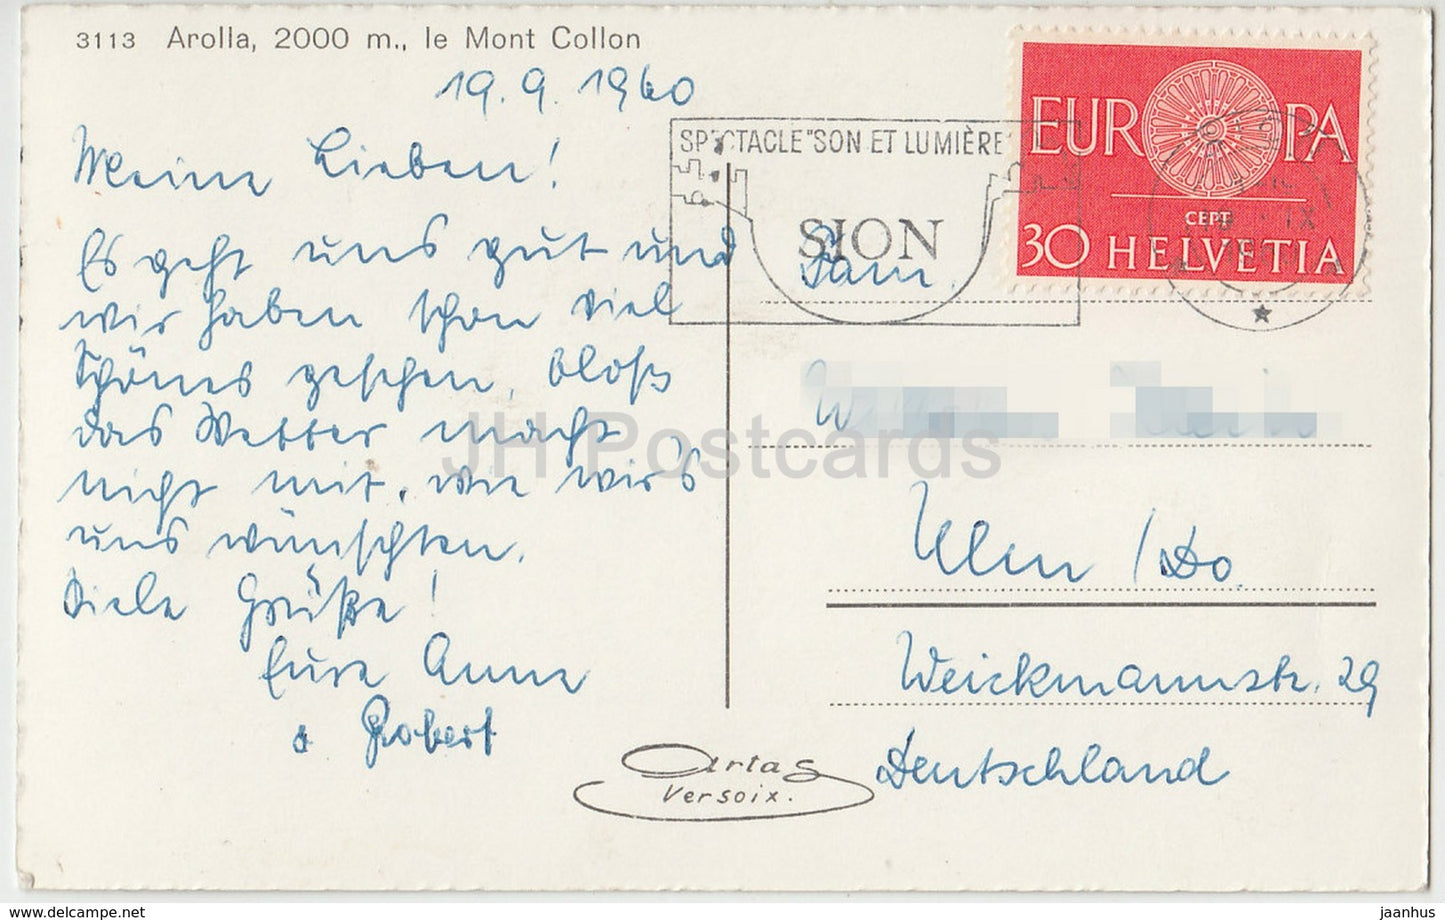 3113 Arolla, 2000 m., le Mont Collon
19.9.1960
Meine Lieben!
Es geht uns gut und
wir haben schon viel
Schönes gesehen, bloß
das Wetter macht
nicht mit, wie wir's
uns wünschten.
Viele Grüße!
Eure Anne
& Robert
SPECTACLE "SON ET LUMIÈRE"
SION
EUROPA
CEPT
30 HELVETIA
Fam.
Ulm /Do.
Weickmannstr. 29
Deutschland
Artas
Versoix.
JH Postcards
delcampe.net
jaanhus